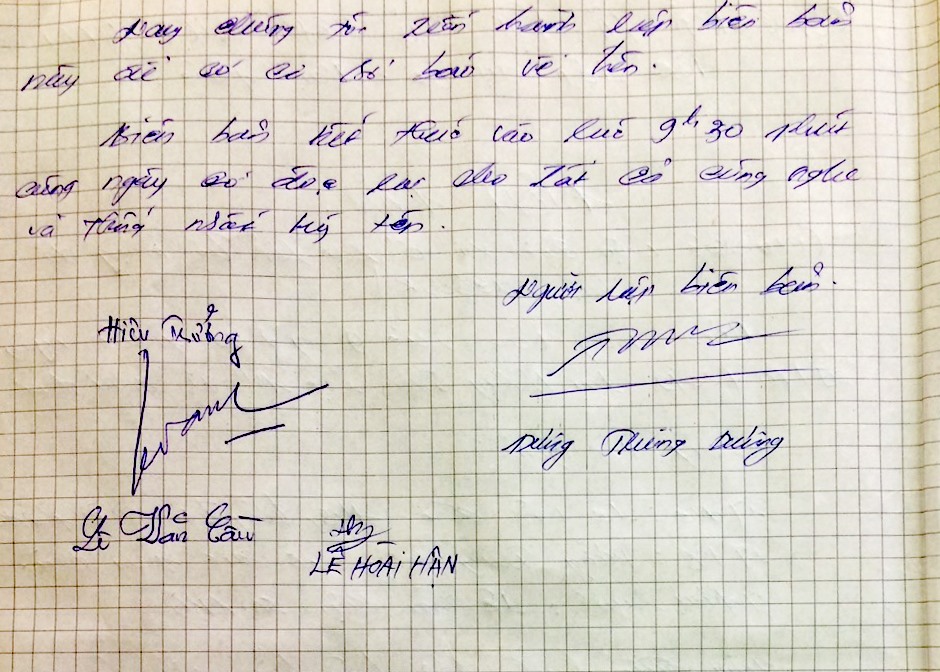 Nay chúng tôi tiến hành lập biên bản
này để có cơ sở báo về trên.
Biên bản kết thúc vào lúc 9h 30 phút
cùng ngày có đọc lại cho tất cả cùng nghe
và thống nhất ký tên.
Người lập biên bản.
Hiệu Trưởng
Dương
Lê Văn Cầu
LÊ HOÀI HẬN